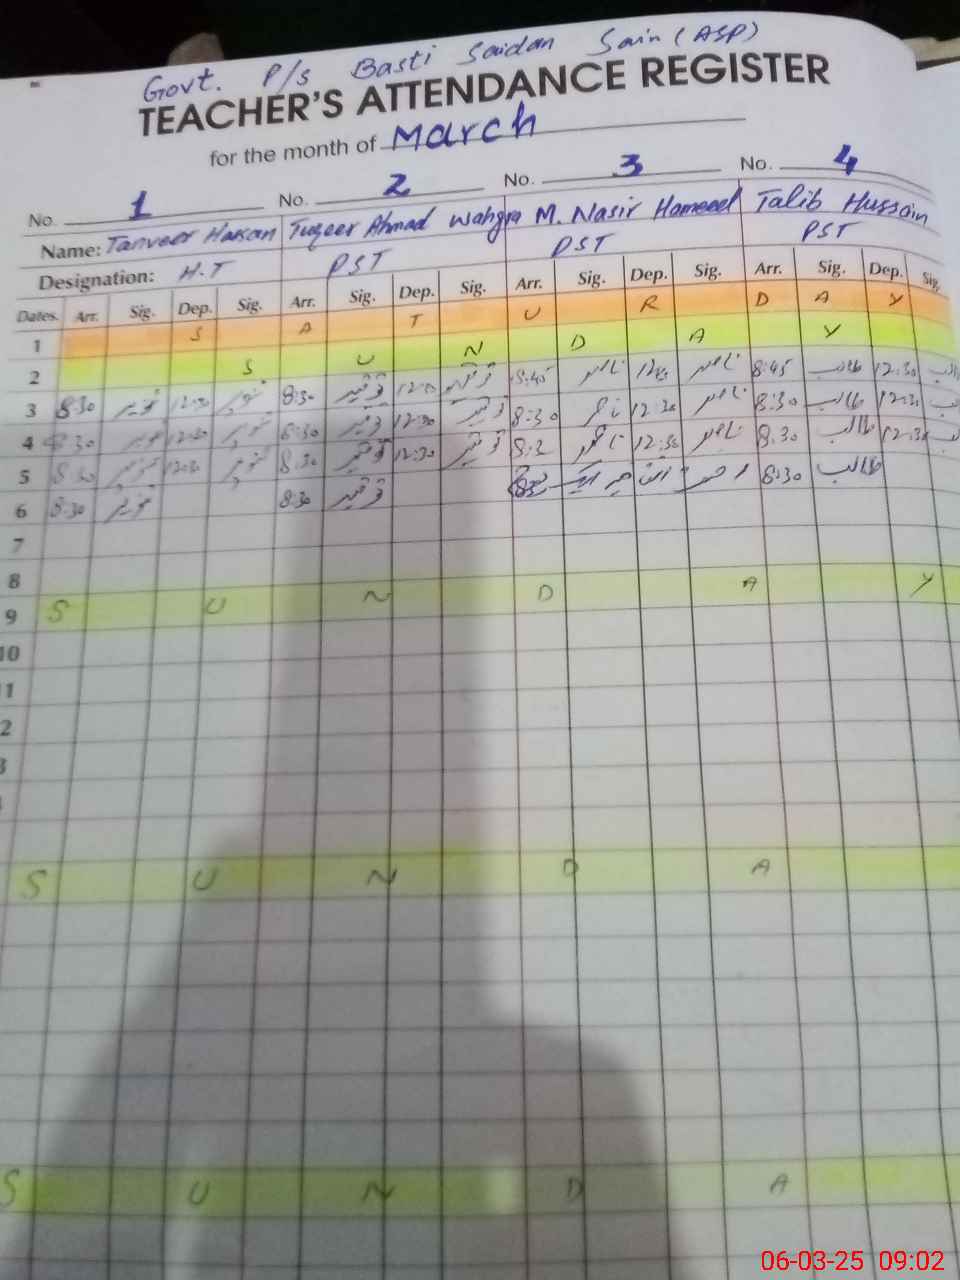 Govt. P/s Basti Saidan Sain (ASP)
TEACHER'S ATTENDANCE REGISTER
for the month of March
No. 1 No. 2 No. 3 No. 4
Name: Tanveer Hassan Tuqeer Ahmad Wahgra M. Nasir Hameed Talib Hussain
Designation: H.T PST PST PST
Dates. Arr. Sig. Dep. Sig. Arr. Sig. Dep. Sig. Arr. Sig. Dep. Sig. Arr. Sig. Dep. Sig.
1 S A T U R D A Y
2 S U N D A Y
3 8:30 تنویر 12:30 تنویر 8:30 توقیر توقیر 8:45 ناصر ناصر 8:45 طالب 12:30 طالب
4 8:30 تنویر 12:30 تنویر 8:30 توقیر 12:30 توقیر 8:30 ناصر 12:30 ناصر 8:30 طالب 12:30
5 8:30 تنویر 12:30 تنویر 8:30 توقیر 12:30 توقیر 8:3 ناصر 12:30 ناصر 8:30 طالب 12:30
6 8:30 تنویر 8:30 توقیر 8:30 طالب
7
8
9 S U N D A Y
10
11
2
3
S U N D A
S U N D A
06-03-25 09:02